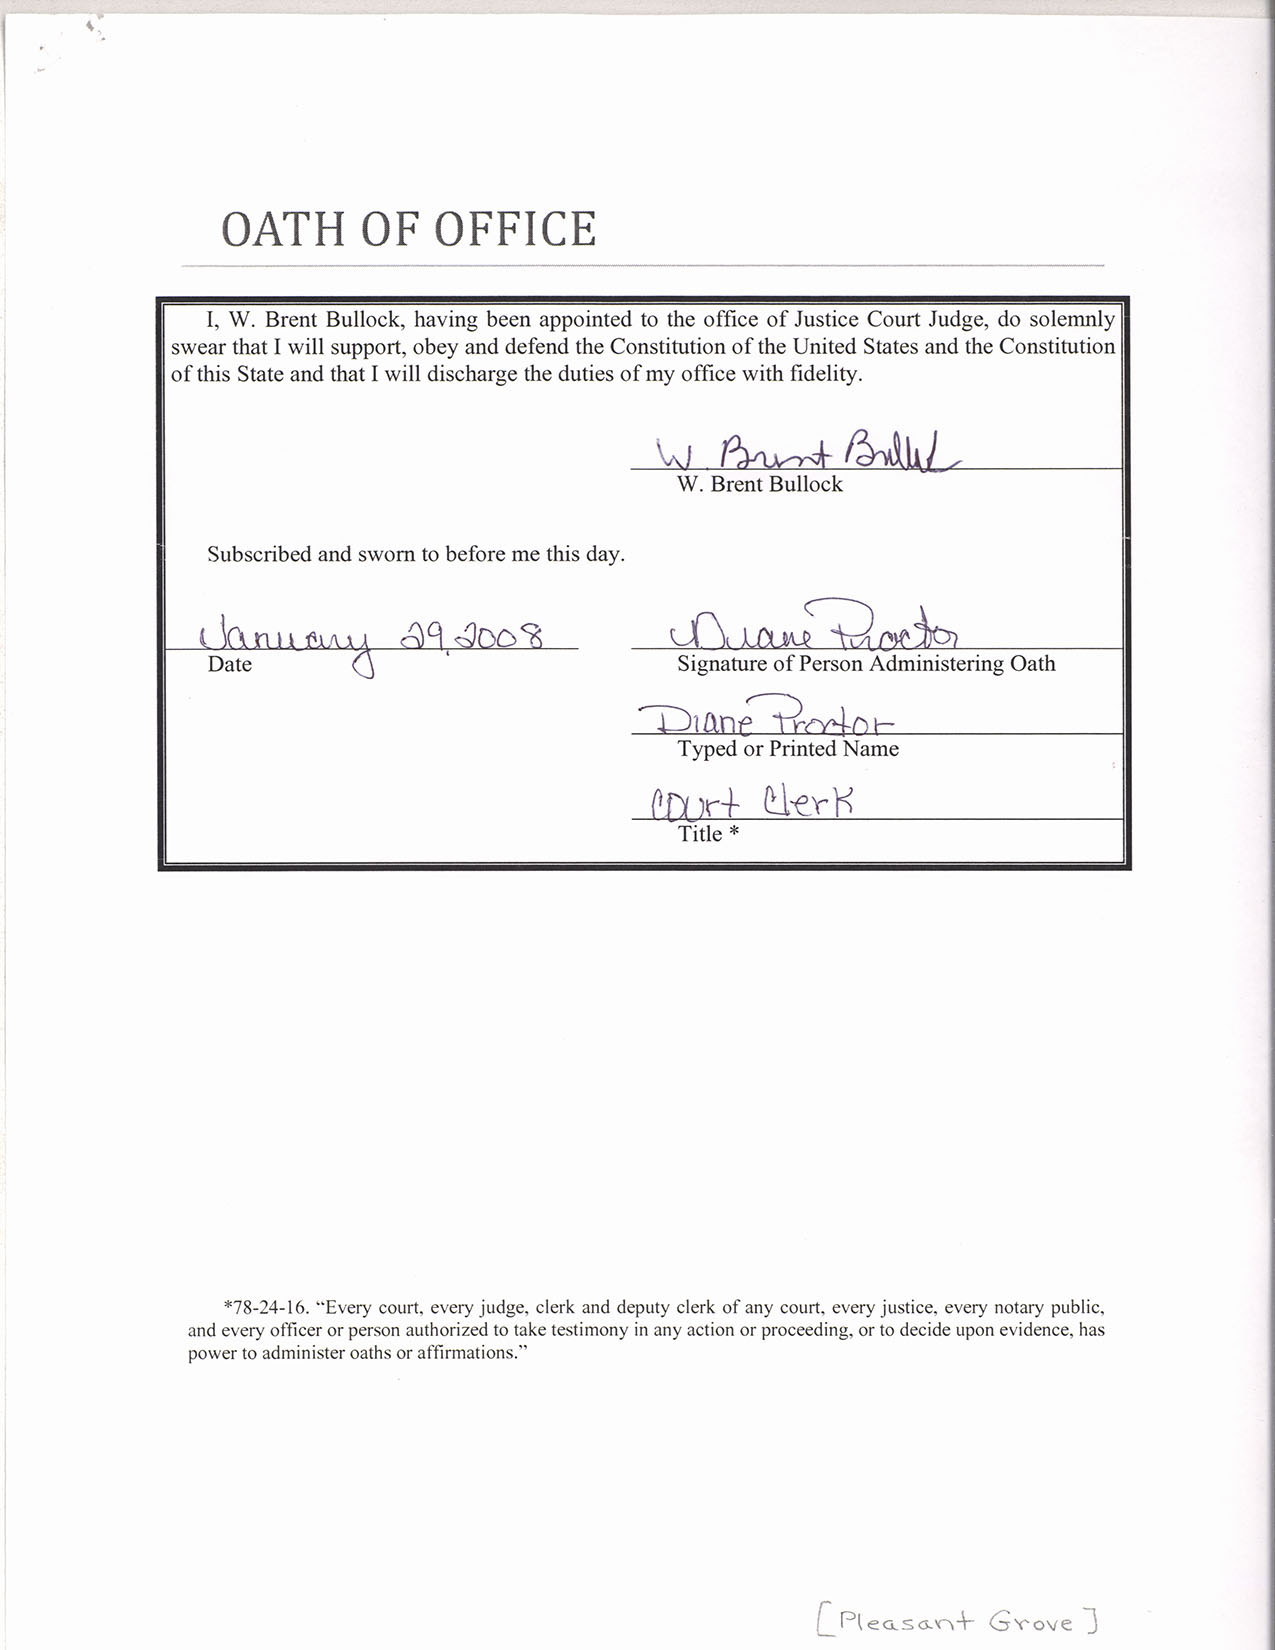 OATH OF OFFICE
I, W. Brent Bullock, having been appointed to the office of Justice Court Judge, do solemnly
swear that I will support, obey and defend the Constitution of the United States and the Constitution
of this State and that I will discharge the duties of my office with fidelity.
W Brent Bullock
W. Brent Bullock
Subscribed and sworn to before me this day.
January 29, 2008 Diane Proctor
Date Signature of Person Administering Oath
Diane Proctor
Typed or Printed Name
Court Clerk
Title *
*78-24-16. “Every court, every judge, clerk and deputy clerk of any court, every justice, every notary public,
and every officer or person authorized to take testimony in any action or proceeding, or to decide upon evidence, has
power to administer oaths or affirmations.”
[Pleasant Grove]